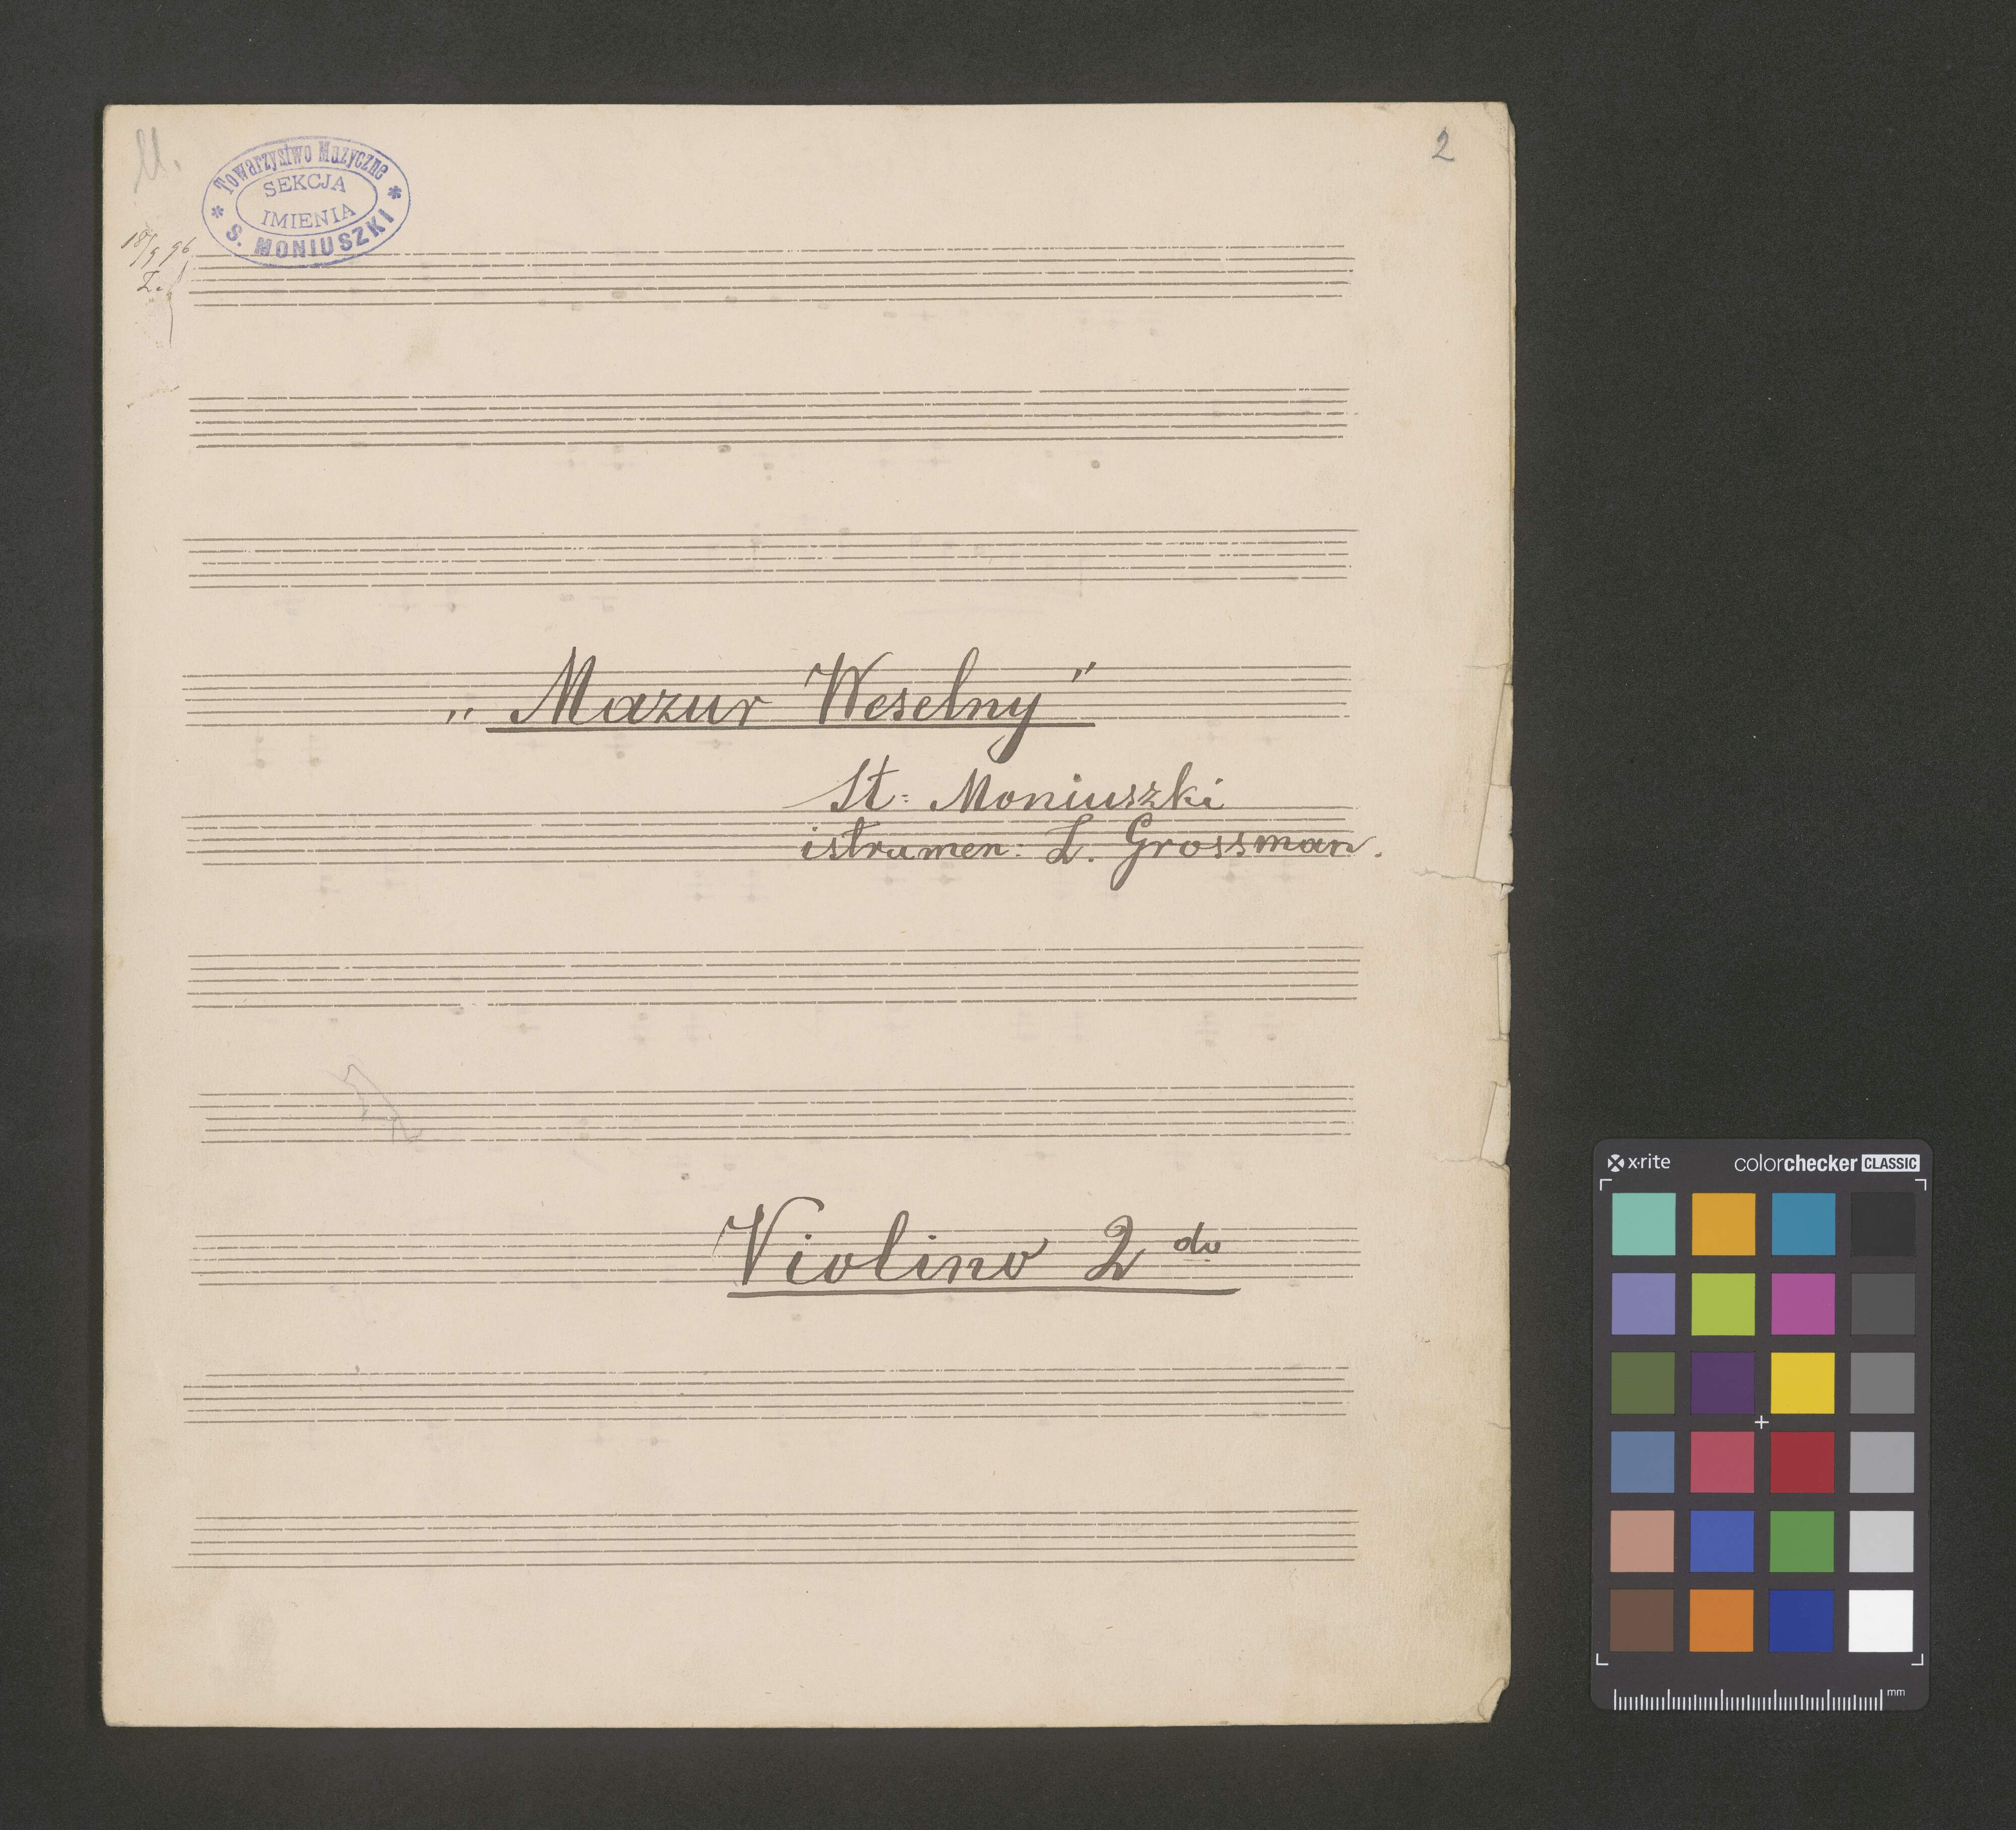 2
Towarzystwo Muzyczne
SEKCJA
IMIENIA
* S. MONIUSZKI *
„Mazur Weselny"
St: Moniuszki
istrumen: L. Grossman.
Violino 2do
x·rite colorchecker CLASSIC
mm